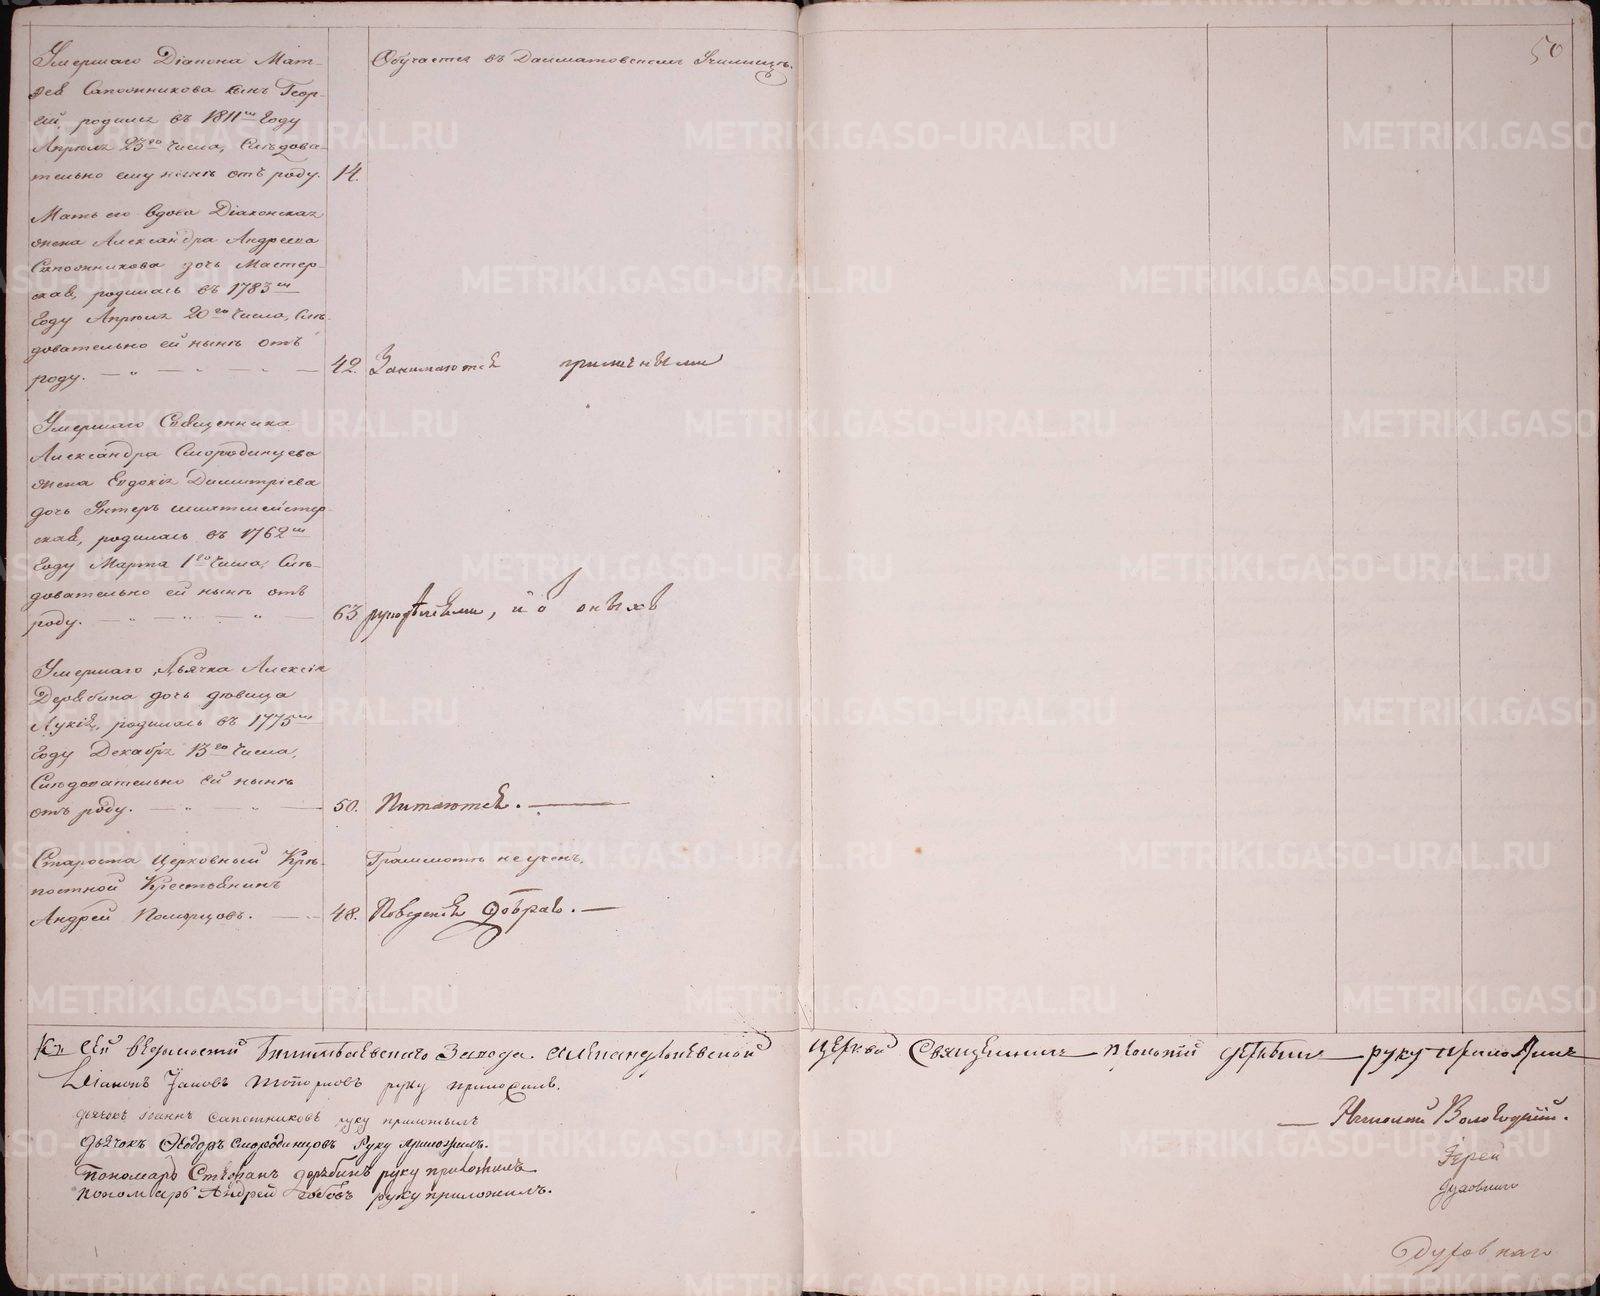 50
Умершаго Діакона Мат-
ѳея Сапожникова сынъ Геор-
гій, родился въ 1811мъ году
Апрѣля 23го числа, Слѣдова-
тельно ему нынѣ отъ роду. 14.
Обучается въ Далматовскомъ Училищѣ.
Мать его вдова Діаконская
жена Александра Андреева
Сапожникова дочь Мастер-
ская, родилась въ 1783м
году Апрѣля 20го числа, Слѣ-
довательно ей нынѣ отъ
роду. 42. Занимаются приличными
Умершаго Священника
Александра Смородинцева
жена Евдокія Димитріева
дочь
ская, родилась въ 1762м
году Марта 1го числа, Слѣ-
довательно ей нынѣ отъ
роду. 63 рукодѣліями, и о оныхъ
Умершаго Дьячка Алексія
Дерябина дочь дѣвица
Лукія, родилась въ 1775м
году Декабря 13го числа,
Слѣдовательно ей нынѣ
отъ роду. 50. Питаются.
Староста Церковный Крѣ-
постной Крестьянинъ
Андрей Поморцовъ. 48.
Грамматѣ не ученъ,
Поведенія добраго.
Къ сей вѣдомости Билимбаевскаго Завода Александроневской церкви Священникъ Прокопій Дерябинъ руку приложилъ
Діаконъ Топорковъ руку приложилъ.
Дьячокъ Іоаннъ Сапожниковъ руку приложилъ
Дьячокъ Ѳеодоръ Смородинцовъ руку приложилъ.
Пономарь Стефанъ Дерябинъ руку приложилъ
Пономарь Андрей руку приложилъ.
Николай
Іерей
Духовнаго
Духовнаго
METRIKI.GASO-URAL.RU